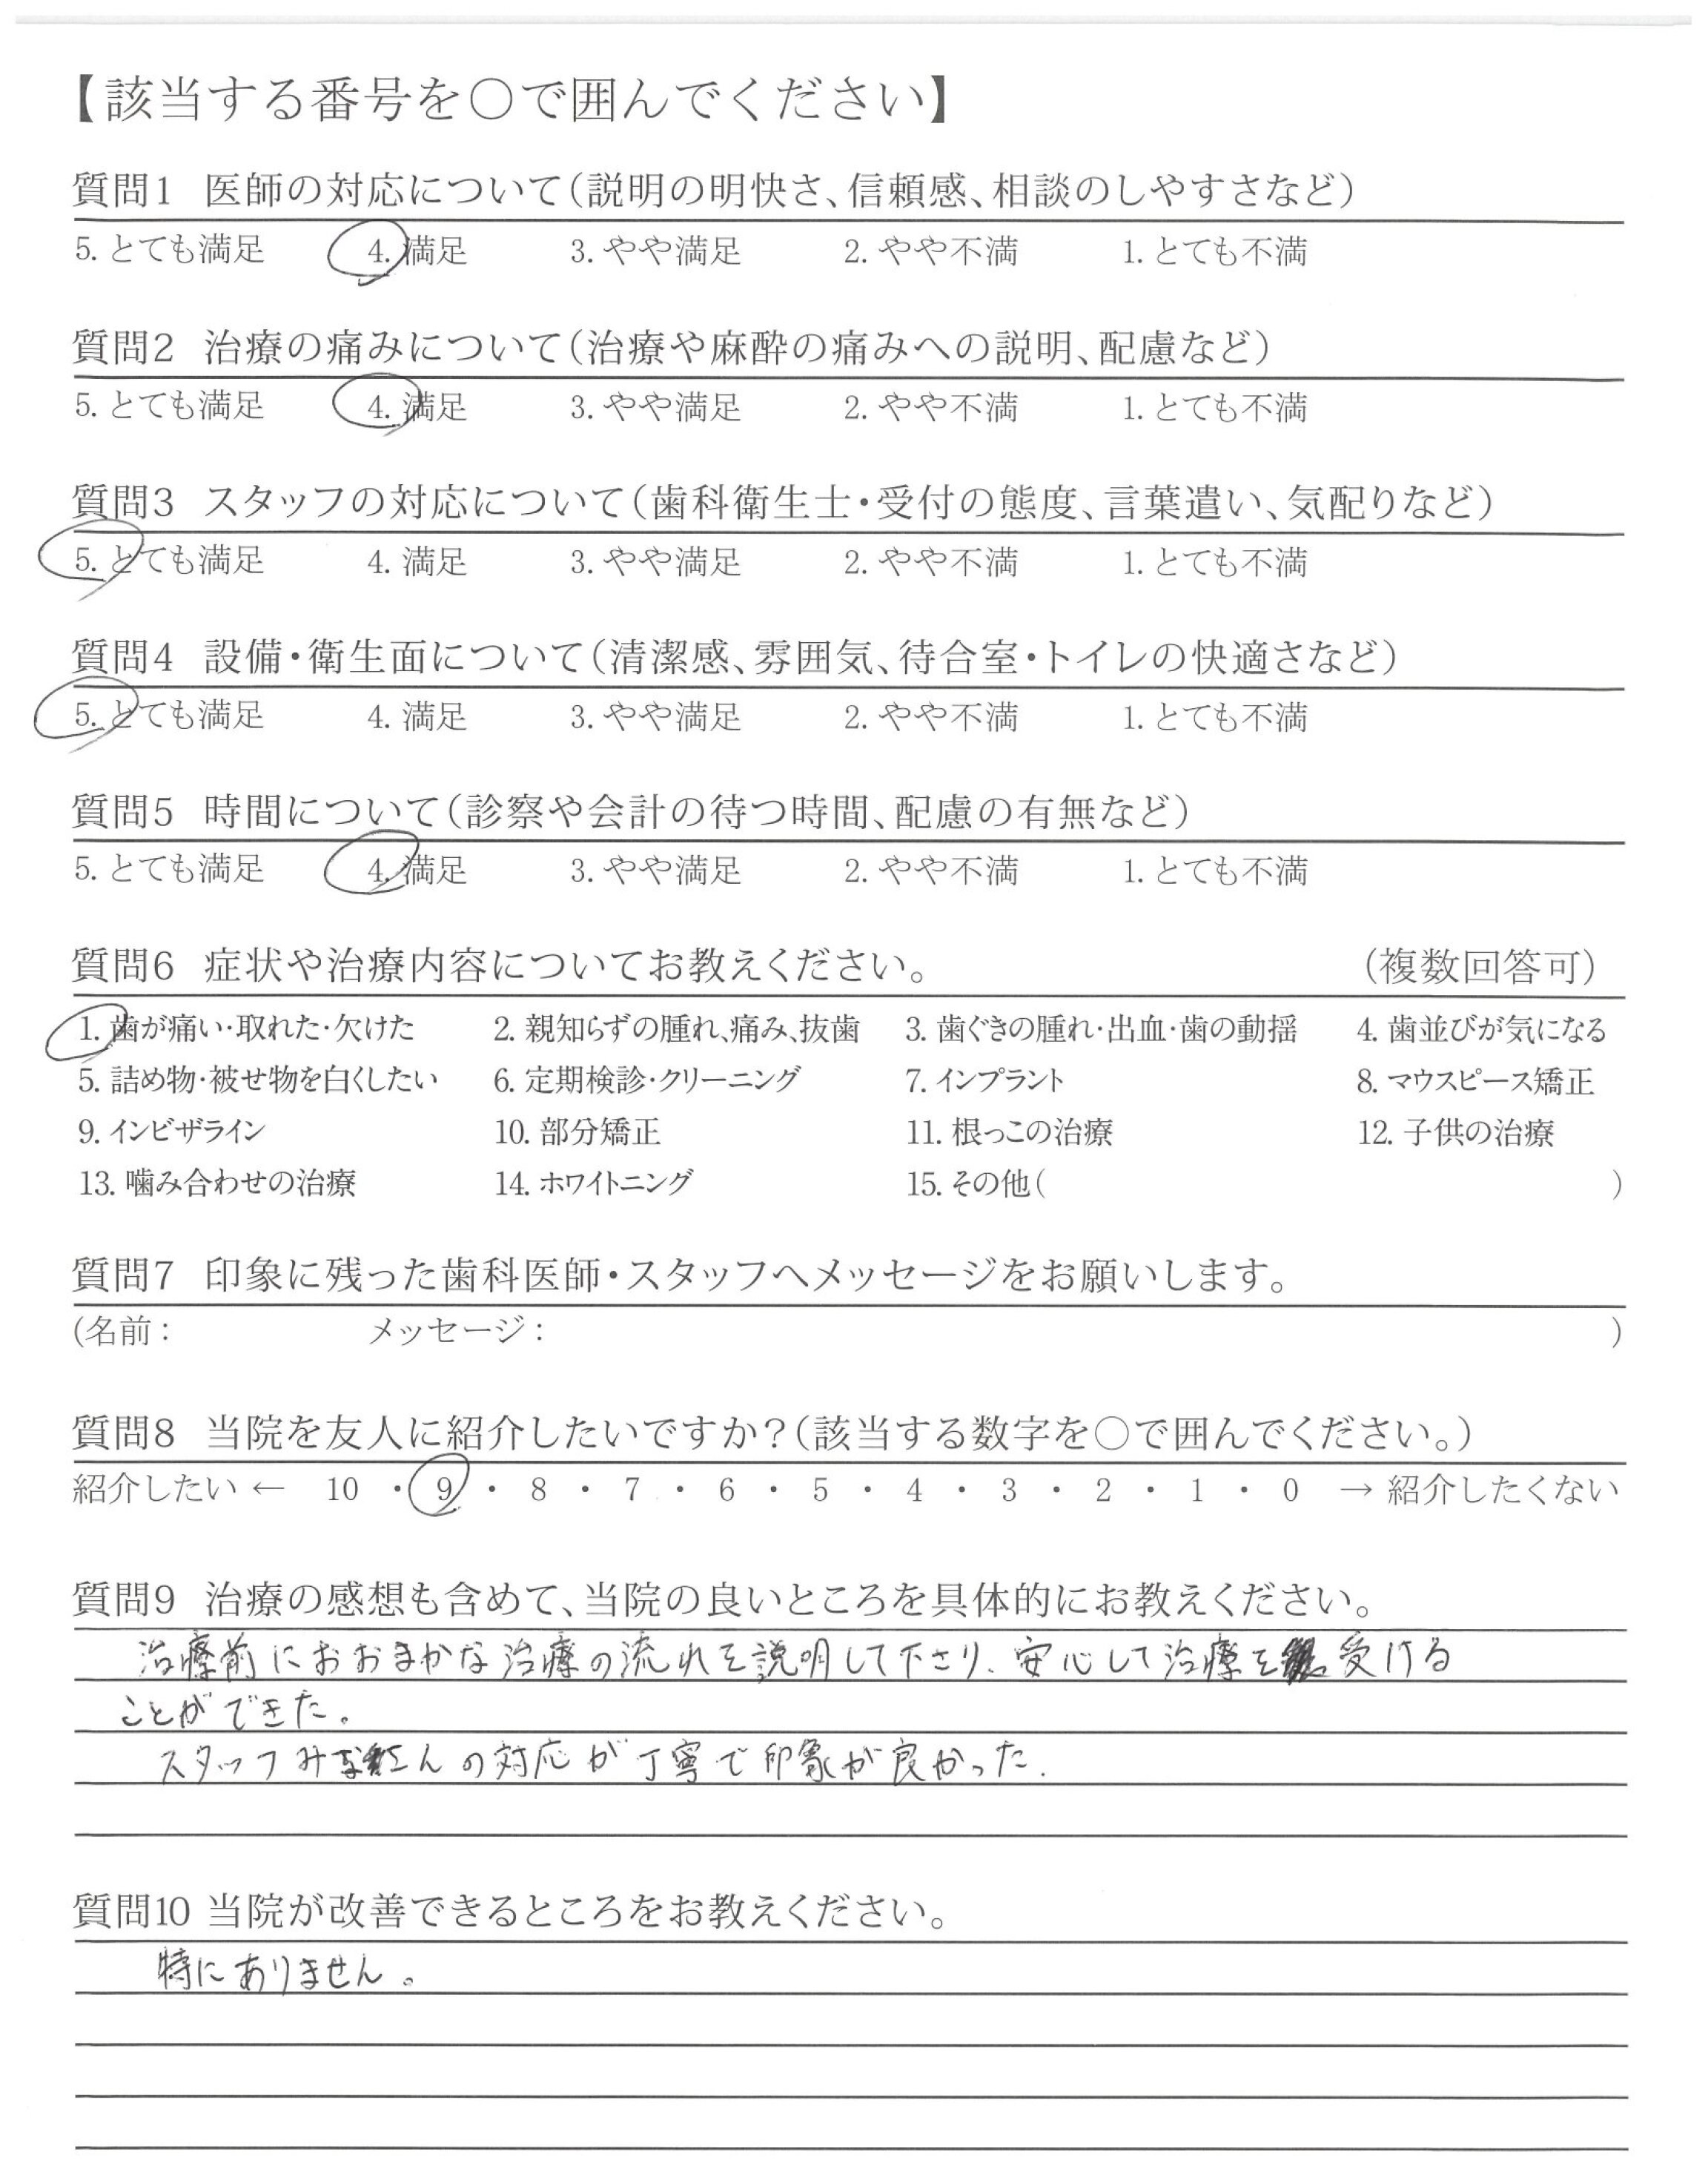 【該当する番号を○で囲んでください】
質問1 医師の対応について（説明の明快さ、信頼感、相談のしやすさなど）
5. とても満足 4. 満足 3. やや満足 2. やや不満 1. とても不満
質問2 治療の痛みについて（治療や麻酔の痛みへの説明、配慮など）
5. とても満足 4. 満足 3. やや満足 2. やや不満 1. とても不満
質問3 スタッフの対応について（歯科衛生士・受付の態度、言葉遣い、気配りなど）
5. とても満足 4. 満足 3. やや満足 2. やや不満 1. とても不満
質問4 設備・衛生面について（清潔感、雰囲気、待合室・トイレの快適さなど）
5. とても満足 4. 満足 3. やや満足 2. やや不満 1. とても不満
質問5 時間について（診察や会計の待つ時間、配慮の有無など）
5. とても満足 4. 満足 3. やや満足 2. やや不満 1. とても不満
質問6 症状や治療内容についてお教えください。 （複数回答可）
1. 歯が痛い・取れた・欠けた 2. 親知らずの腫れ、痛み、抜歯 3. 歯ぐきの腫れ・出血・歯の動揺 4. 歯並びが気になる
5. 詰め物・被せ物を白くしたい 6. 定期検診・クリーニング 7. インプラント 8. マウスピース矯正
9. インビザライン 10. 部分矯正 11. 根っこの治療 12. 子供の治療
13. 噛み合わせの治療 14. ホワイトニング 15. その他（ ）
質問7 印象に残った歯科医師・スタッフへメッセージをお願いします。
（名前： メッセージ： ）
質問8 当院を友人に紹介したいですか？（該当する数字を○で囲んでください。）
紹介したい ← 10 ・ 9 ・ 8 ・ 7 ・ 6 ・ 5 ・ 4 ・ 3 ・ 2 ・ 1 ・ 0 → 紹介したくない
質問9 治療の感想も含めて、当院の良いところを具体的にお教えください。
治療前におおまかな治療の流れを説明して下さり、安心して治療を受ける
ことができた。
スタッフみなさんの対応が丁寧で印象が良かった.
質問10 当院が改善できるところをお教えください。
特にありません。